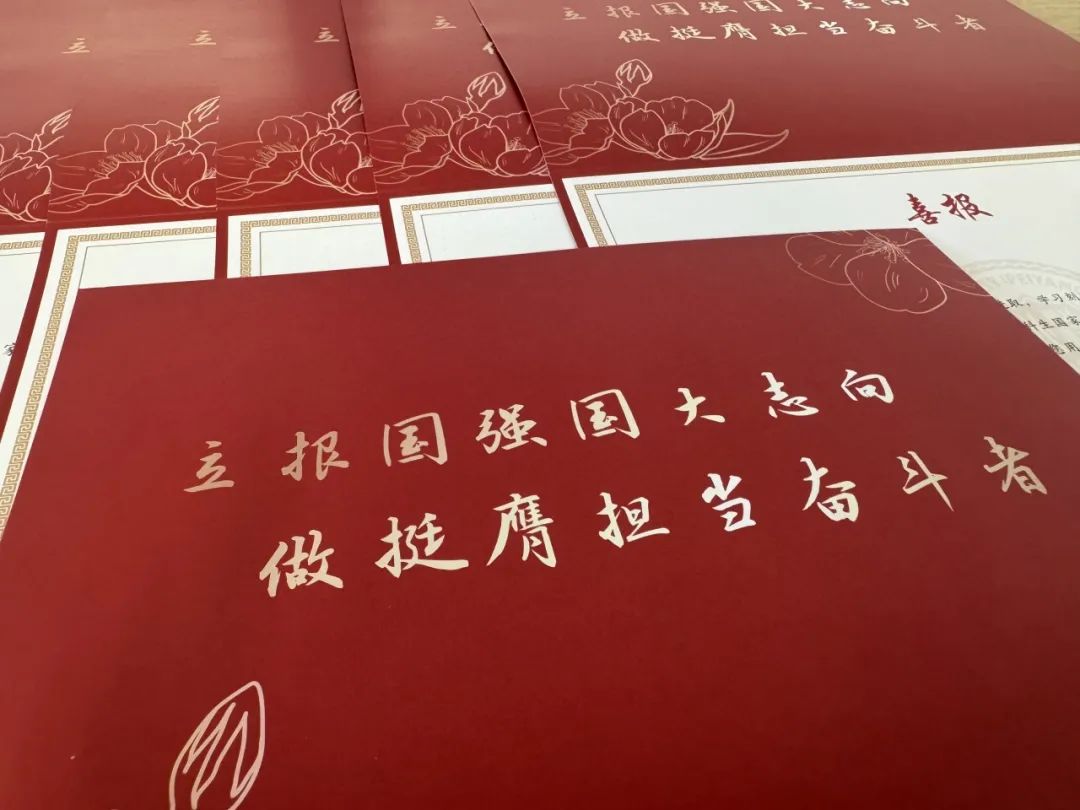 立
立
立
立
立报国强国大志向
做挺膺担当奋斗者
喜报
取，学习刻
科生国家
您用
立报国强国大志向
做挺膺担当奋斗者